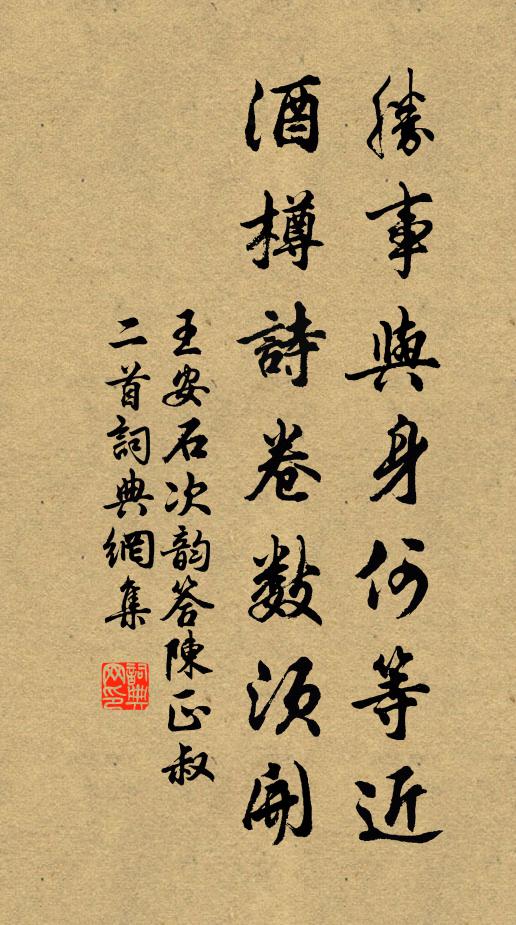 勝事與身何等近
酒樽詩卷數須開
王安石次韵答陳正叔
二首詞典網集
詞典網印